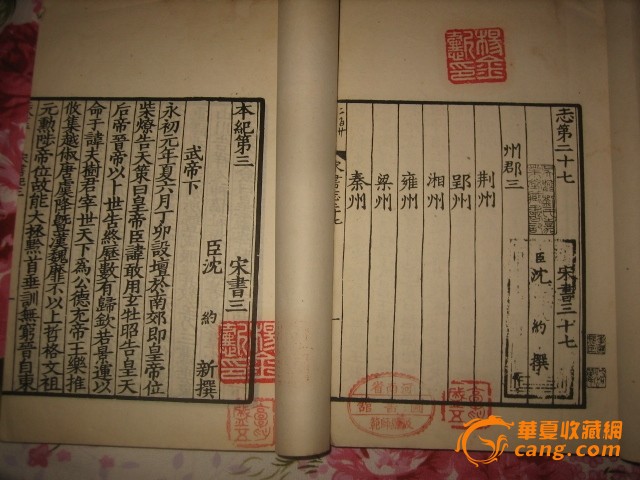 志第二十七
宋書三十七
臣沈約撰
州郡三
荆州
郢州
湘州
雍州
梁州
秦州
本紀第三
宋書三
臣沈約新撰
武帝下
永初元年夏六月丁卯設壇於南郊即皇帝位
柴燎告天策曰皇帝臣諱敢用玄牡昭告皇天
后帝晉帝以卜世告終歷數有歸欽若景運以
命于諱夫樹君宰世天下為公德充帝王樂推
攸集越俶唐虞降曁漢魏靡不以上哲格文祖
元勲陟帝位故能大拯黔首垂訓無窮晉自東
華夏收藏网
cang.com